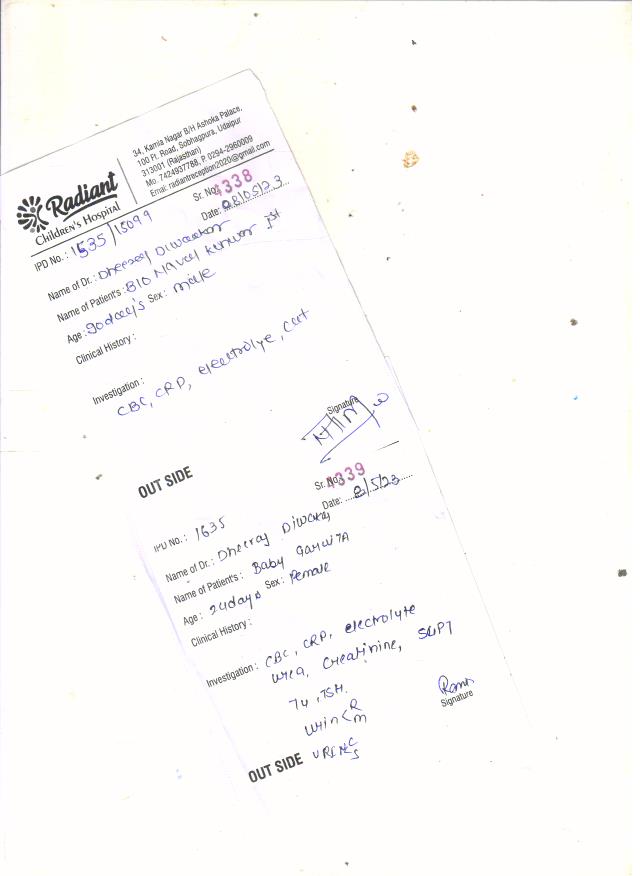 Radiant
Children's Hospital
34, Kamla Nagar B/H Ashoka Palace,
100 Ft. Road, Sobhagpura, Udaipur
313001 (Rajasthan)
Mo. 7424937788, P. 0294-2960009
Email: radiantreception2020@gmail.com
Sr. No. 4338
IPD No.: 1535/15099
Date: 08/05/23
Name of Dr.: Dheeraj Diwakar
Name of Patient's: B/O Naval Kunwar Ist
Age: 90days Sex: male
Clinical History:
Investigation:
CBC, CRP, electrolye,
Signature
OUT SIDE
Sr. No. 4339
IPD No.: 1635
Date: 8/5/23
Name of Dr.: Dheeraj Diwakar
Name of Patient's: Baby
Age: 24days Sex: Female
Clinical History:
Investigation: CBC, CRP, electrolyte
urea, Creatinine, SGPT
T4, TSH.
Urin R
M
URINE C
S
Signature
OUT SIDE